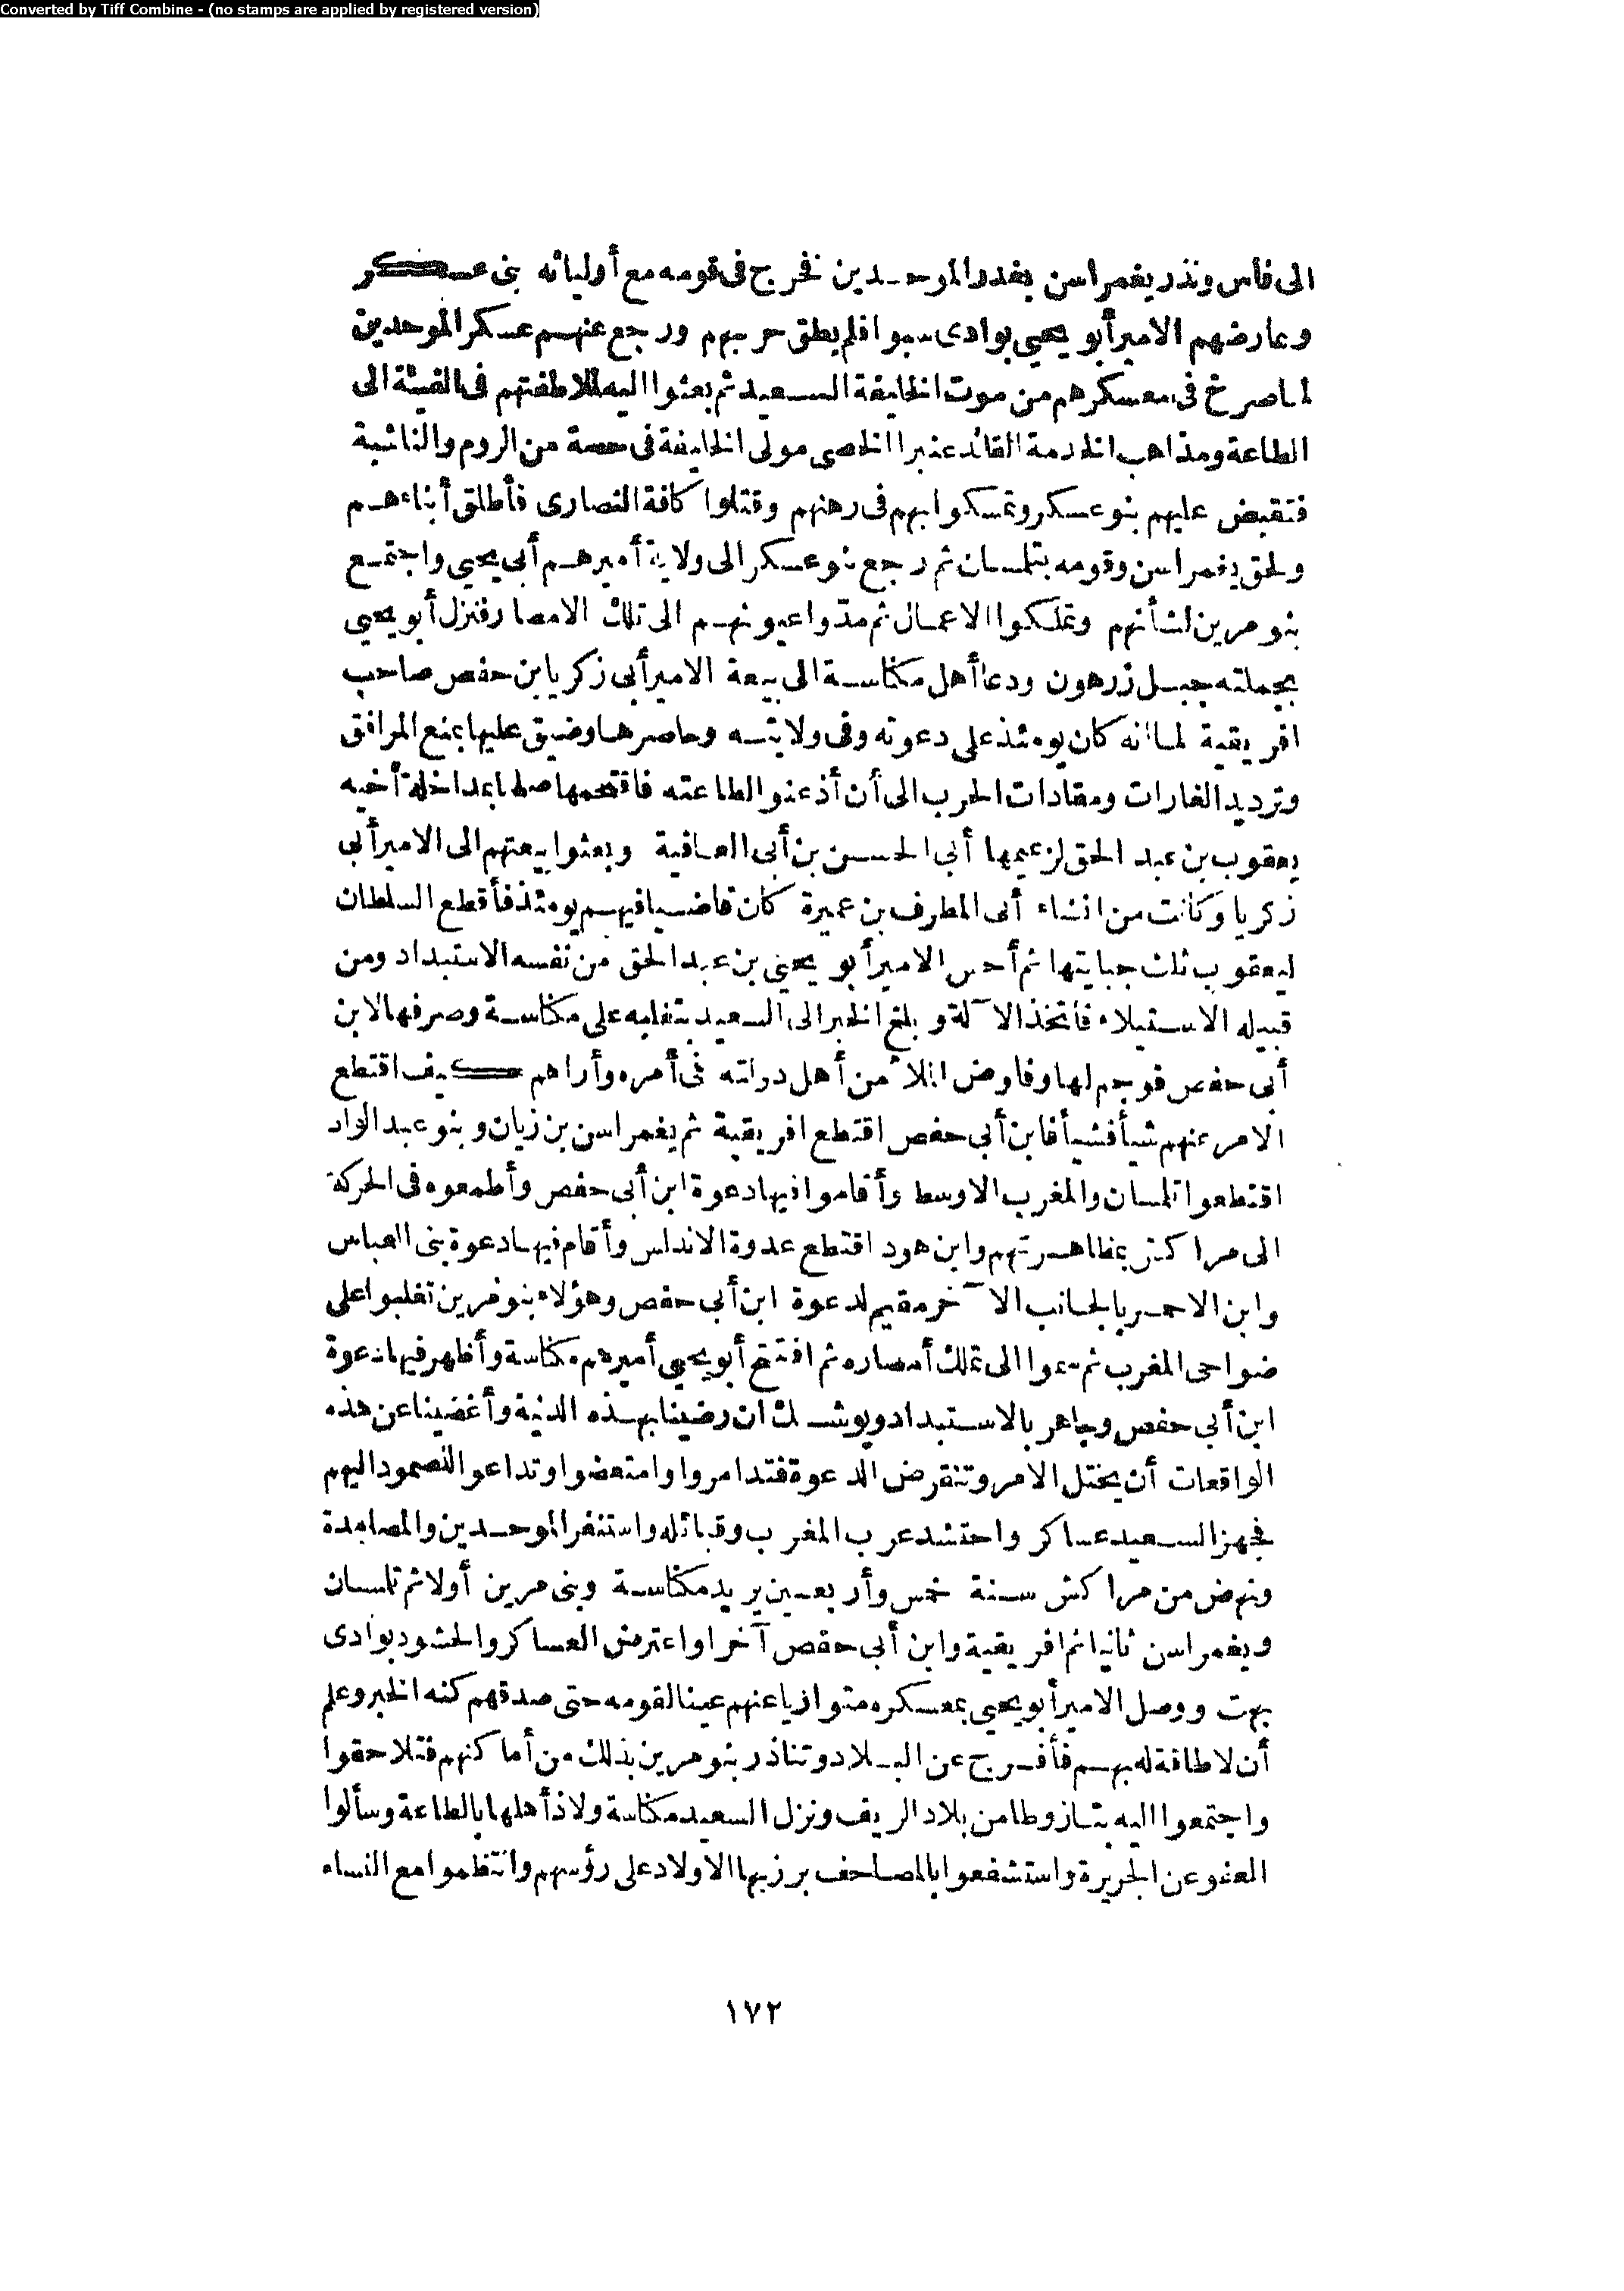 Converted by Tiff Combine - (no stamps are applied by registered version)
الى فاس ونذر يغمراسن بغدر الموحدين فخرج فى قومه مع أوليائه بنى عسكر
وعارضهم الامير أبو يحيى بوادى سبوا فلم يطق حربهم ورجع عنهم عسكر الموحدين
لما صرخ فى معسكرهم من موت الخليفة السعيد ثم بعثوا اليه لملاطفتهم فى الفيئة الى
الطاعة ومذاهب الخدمة القائد عنبرا الخصى مولى الخليفة فى حصة من الروم والناشبة
فتقبض عليهم بنو عسكر وتمسكوا بهم فى رهنهم وقتلوا كافة النصارى فأطلق أبناءهم
ولحق يغمراسن وقومه بتلمسان ثم رجع بنو عسكر الى ولاية أميرهم أبى يحيى واجتمع
بنو مرين لشأنهم وتملكوا الاعمال ثم مدّوا عيونهم الى تلك الامصار فنزل أبو يحيى
بجملته جبل زرهون ودعا أهل مكناسة الى بيعة الامير أبى زكريا بن حفص صاحب
افريقية لما انه كان يومئذ على دعوته وفى ولايته وحاصرها وضيق عليها بمنع المرافق
وترديد الغارات ومقادات الحرب الى أن أذعنوا لطاعته فافتتحمها صلحا بمداخلة أخيه
يعقوب بن عبد الحق لزعيمها أبى الحسن بن أبى العافية وبعثوا بيعتهم الى الامير أبى
زكريا وكانت من انشاء أبى المطرف بن عميرة كان قاضيا فيهم يومئذ فأقطع السلطان
ليعقوب ثلث جبايتها ثم أحس الامير أبو يحيى بن عبد الحق من نفسه الاستبداد ومن
قبيله الاستيلاء فاتخذ الآلة وبلغ الخبر الى السعيد بتغلبه على مكناسة وصرفها لابن
أبى حفص فوجم لها وفاوض الملأ من أهل دولته فى أمره وأراهم كيف اقتطع
الامر عنهم شيأ فشيأ فابن أبى حفص اقتطع افريقية ثم يغمراسن بن زيان وبنو عبد الواد
اقتطعوا تلمسان والمغرب الاوسط وأقاموا فيها دعوة ابن أبى حفص وأطمعوه فى الحركة
الى مراكش بمظاهرتهم وابن هود اقتطع عدوة الاندلس وأقام فيها دعوة بنى العباس
وابن الاحمر بالجانب الآخر مقيم لدعوة ابن أبى حفص وهؤلاء بنو مرين تغلبوا على
ضواحى المغرب ثم سموا الى تملك أمصاره ثم افتتح أبو يحيى أميرهم مكناسة وأظهر فيها دعوة
ابن أبى حفص وجاهر بالاستبداد ويوشك ان رضينا بهذه الدنية وأغضينا عن هذه
الواقعات أن يختل الامر وتنقرض الدعوة فتدامروا وامتعضوا وتداعوا لصمود اليهم
فجهز السعيد عساكر واحتشد عرب المغرب وقبائله واستنفر الموحدين والمصامدة
ونهض من مراكش سنة خمس وأربعين يريد مكناسة وبنى مرين أولا ثم تلمسان
ويغمراسن ثانيا ثم افريقية وابن أبى حفص آخرا واعترض العساكر والحشود بوادى
بهت ووصل الامير أبو يحيى بمعسكره متوازيا عنهم عينا لقومه حتى صدقهم كنه الخبر وعلم
أن لا طاقة له بهم فأفرج عن البلاد وتناذر بنو مرين بذلك من أماكنهم فتلاحقوا
واجتمعوا اليه بتازوطا من بلاد الريف ونزل السعيد مكناسة ولاذ أهلها بالطاعة وسألوا
العفو عن الجريرة واستشفعوا بالمصاحف برز بها الاولاد على رؤسهم وانتظموا مع النساء
١٧٢